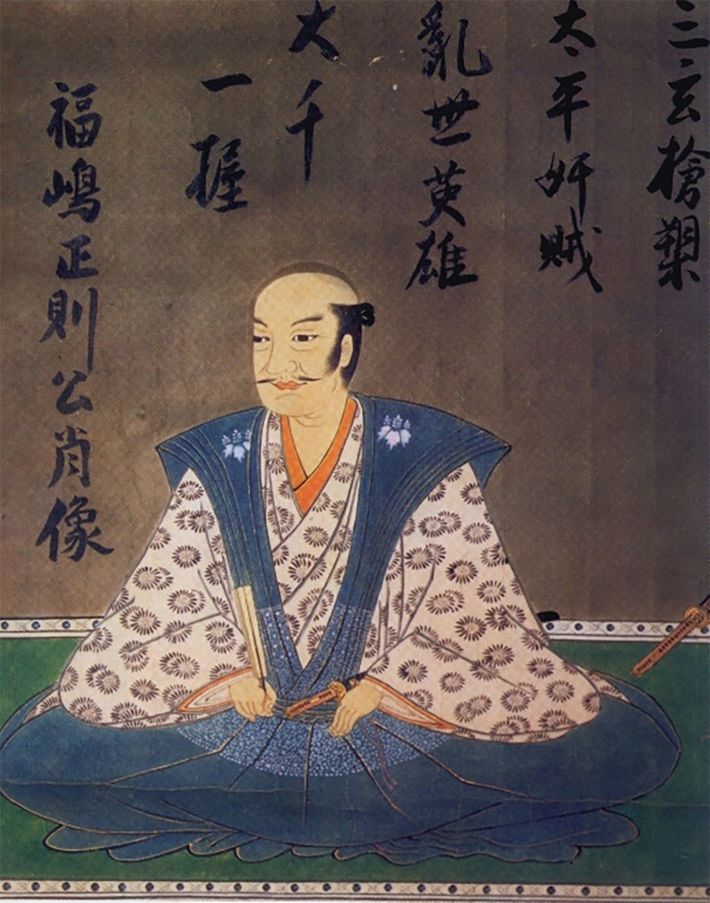 三玄槍槊
太平奸賊
亂世英雄
大千
一握
福嶋正則公肖像